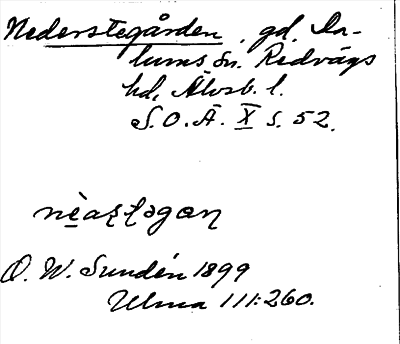 Nederstegården, gd, Da-
lums sn. Redvägs
hd, Älvsb. l.
S.O.Ä. X s. 52.
O. W. Sundén 1899
Ulma 111:260.